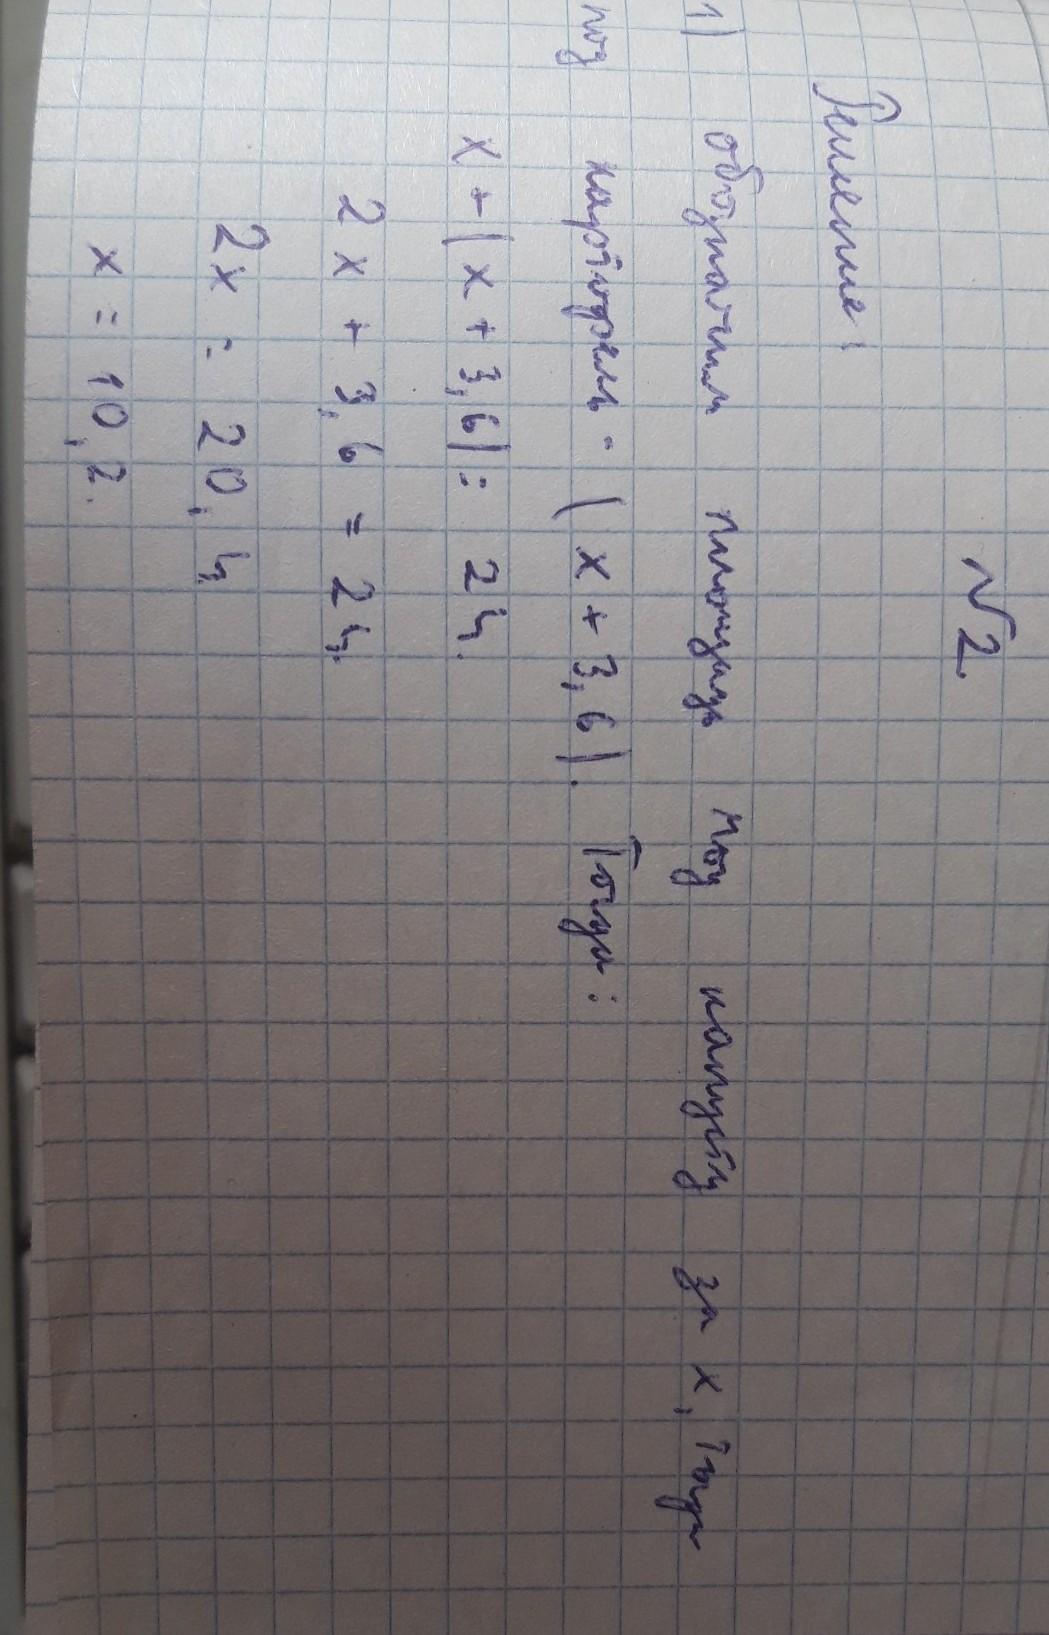 √2.
Решение:
1) обозначим площадь под капусту за x, тогда
под картофель - (x + 3,6). Тогда:
x + (x + 3,6) = 24.
2x + 3,6 = 24.
2x = 20,4
x = 10,2.